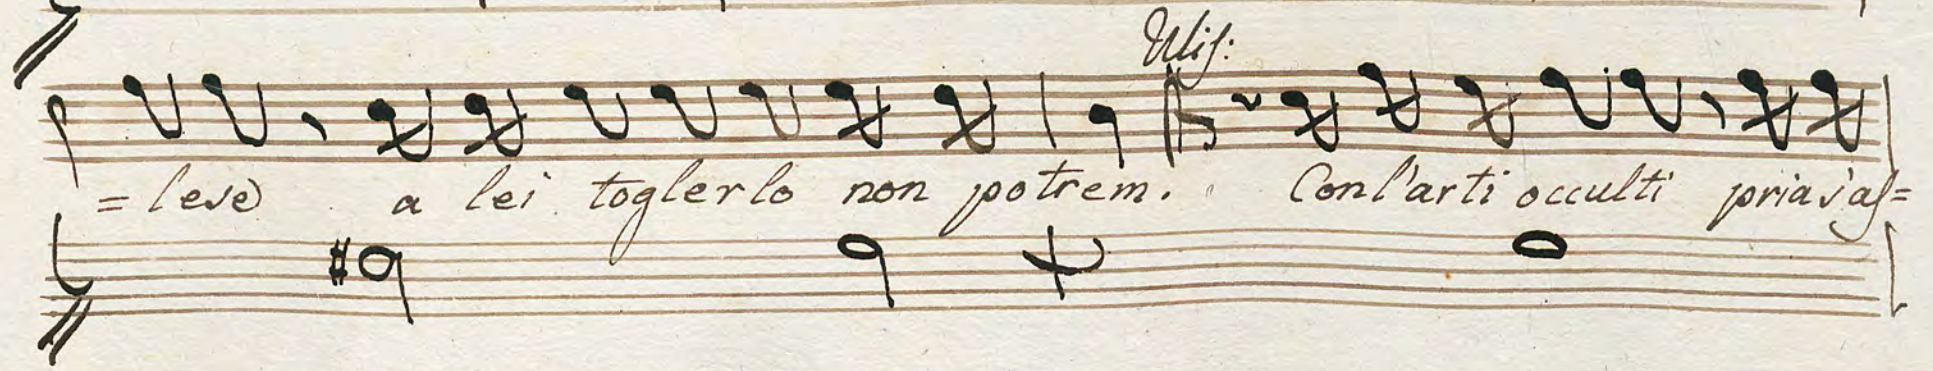 Ulis:
=lese a lei toglerlo non potrem. Con l'arti occulti pria s'as=